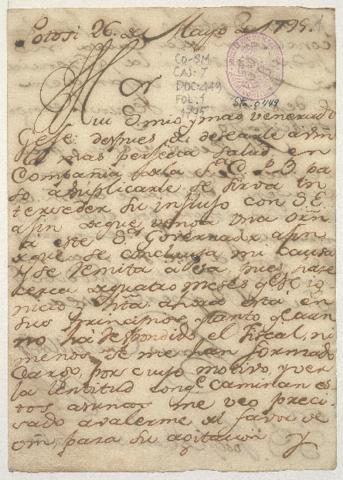 Potosi 26. de Mayo de 1795.
CO-SM
CAJ: 7
DOC: 449
FOL: 1
1795
SF. 0449
Mui S.or mio y mas venerado
Gefe: despues de desearle à vm
la mas perfecta salud en
Compañia de la S.ra pa
so à suplicarle se sirva in
terceder su influjo con S.E.
a fin de que venga una orn
à este S.or Governador a fin
de que se concluya mi causa
y se remita a esa, pues hace
cerca de quatro meses q.e se
inició y hasta ahora esta en
sus principios y tanto q.e aun
no ha respondido el Fiscal, ni
menos se me han formado
Cargo, por cuyo motivo, y ver
la lentitud con q.e caminan es
tos asuntos me veo preci
sado a valerme del favor de
vm, para su agitacion y